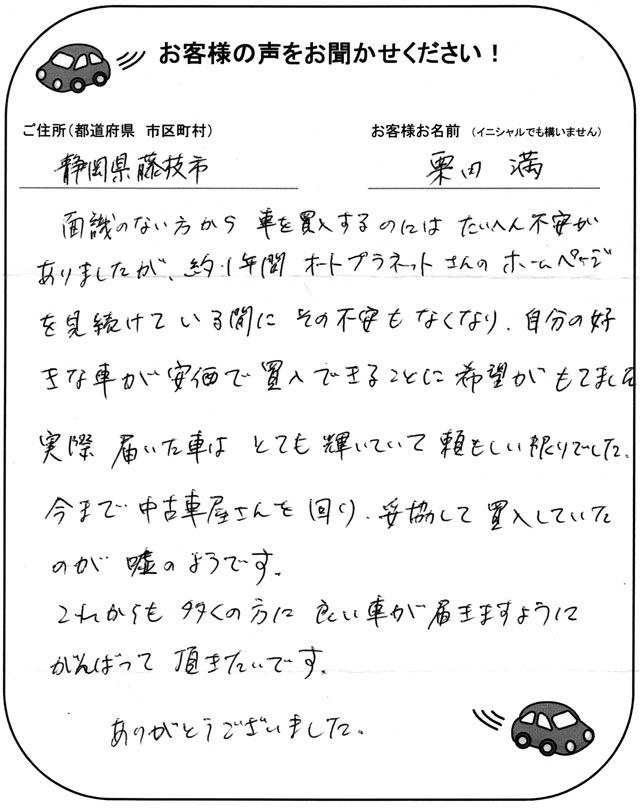 お客様の声をお聞かせください！
ご住所（都道府県 市区町村）
お客様お名前 （イニシャルでも構いません）
静岡県藤枝市
栗田 満
面識のない方から 車を買入するのには たいへん不安が
ありましたが、約1年間 オートプラネットさんの ホームページ
を見続けている間に その不安もなくなり、自分の好
きな車が安価で買入できることに希望がもてました
実際 届いた車は とても輝いていて 頼もしい限りでした。
今まで中古車屋さんを回り、妥協して買入していた
のが 嘘のようです。
これからも 多くの方に 良い車が届きますように
がんばって 頂きたいです。
ありがとうございました。